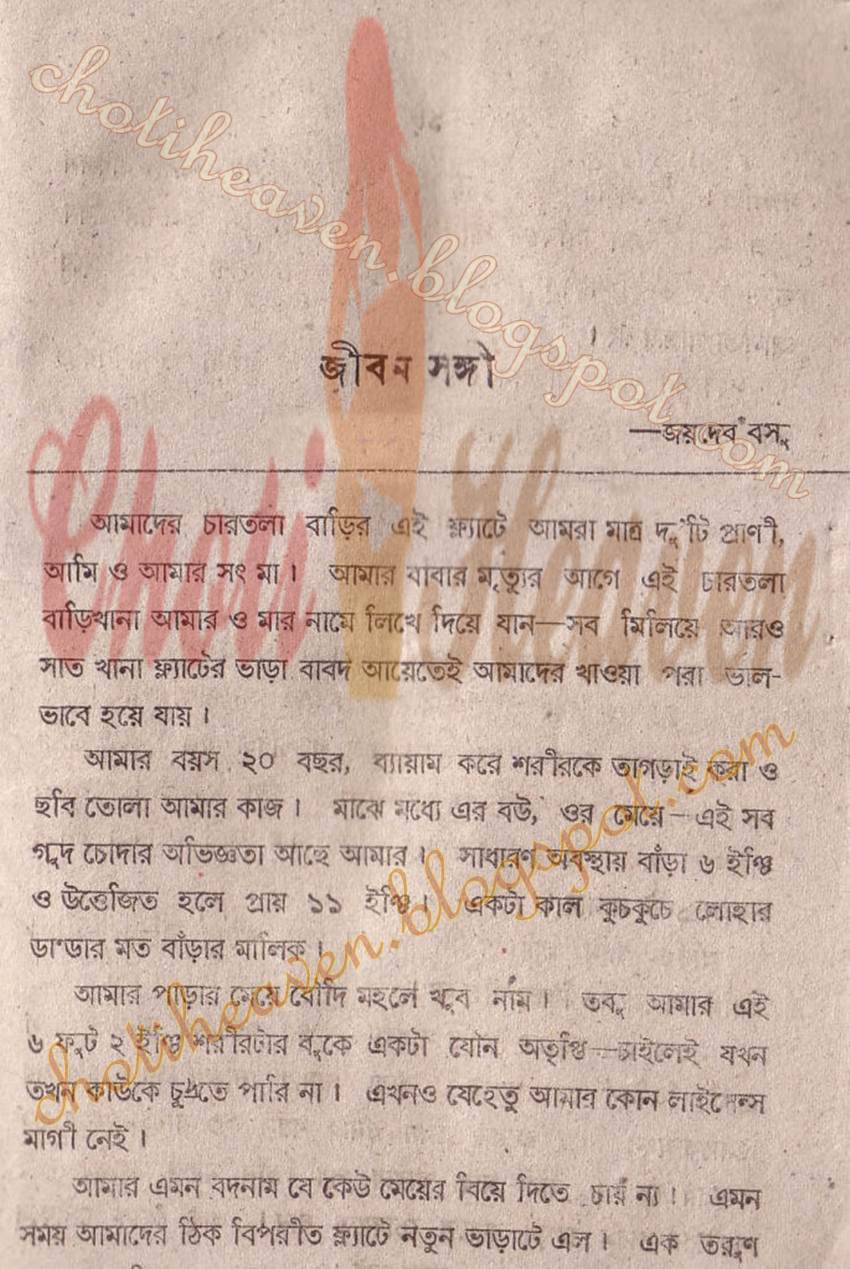 chotiheaven.blogspot.com
জীবন সঙ্গী
—জয়দেব বসু
Choti Heaven
আমাদের চারতলা বাড়ির এই ফ্ল্যাটে আমরা মাত্র দু'টি প্রাণী,
আমি ও আমার সৎ মা। আমার বাবার মৃত্যুর আগে এই চারতলা
বাড়িখানা আমার ও মার নামে লিখে দিয়ে যান—সব মিলিয়ে আরও
সাত খানা ফ্ল্যাটের ভাড়া বাবদ আয়েতেই আমাদের খাওয়া পরা ভাল-
ভাবে হয়ে যায়।
আমার বয়স ২০ বছর, ব্যায়াম করে শরীরকে তাগড়াই করা ও
ছবি তোলা আমার কাজ। মাঝে মধ্যে এর বউ, ওর মেয়ে—এই সব
গুদ চোদার অভিজ্ঞতা আছে আমার। সাধারণ অবস্থায় বাঁড়া ৬ ইঞ্চি
ও উত্তেজিত হলে প্রায় ১১ ইঞ্চি। একটা কাল কুচকুচে লোহার
ডাণ্ডার মত বাঁড়ার মালিক।
আমার পাড়ার মেয়ে বৌদি মহলে খুব নাম। তবু আমার এই
৬ ফুট ২ ইঞ্চি শরীরটার বুকে একটা যৌন অতৃপ্তি—চাইলেই যখন
তখন কাউকে চুদতে পারি না। এখনও যেহেতু আমার কোন লাইসেন্স
মাগী নেই।
আমার এমন বদনাম যে কেউ মেয়ের বিয়ে দিতে চায় না। এমন
সময় আমাদের ঠিক বিপরীত ফ্ল্যাটে নতুন ভাড়াটে এল। এক তরুণ
chotiheaven.blogspot.com